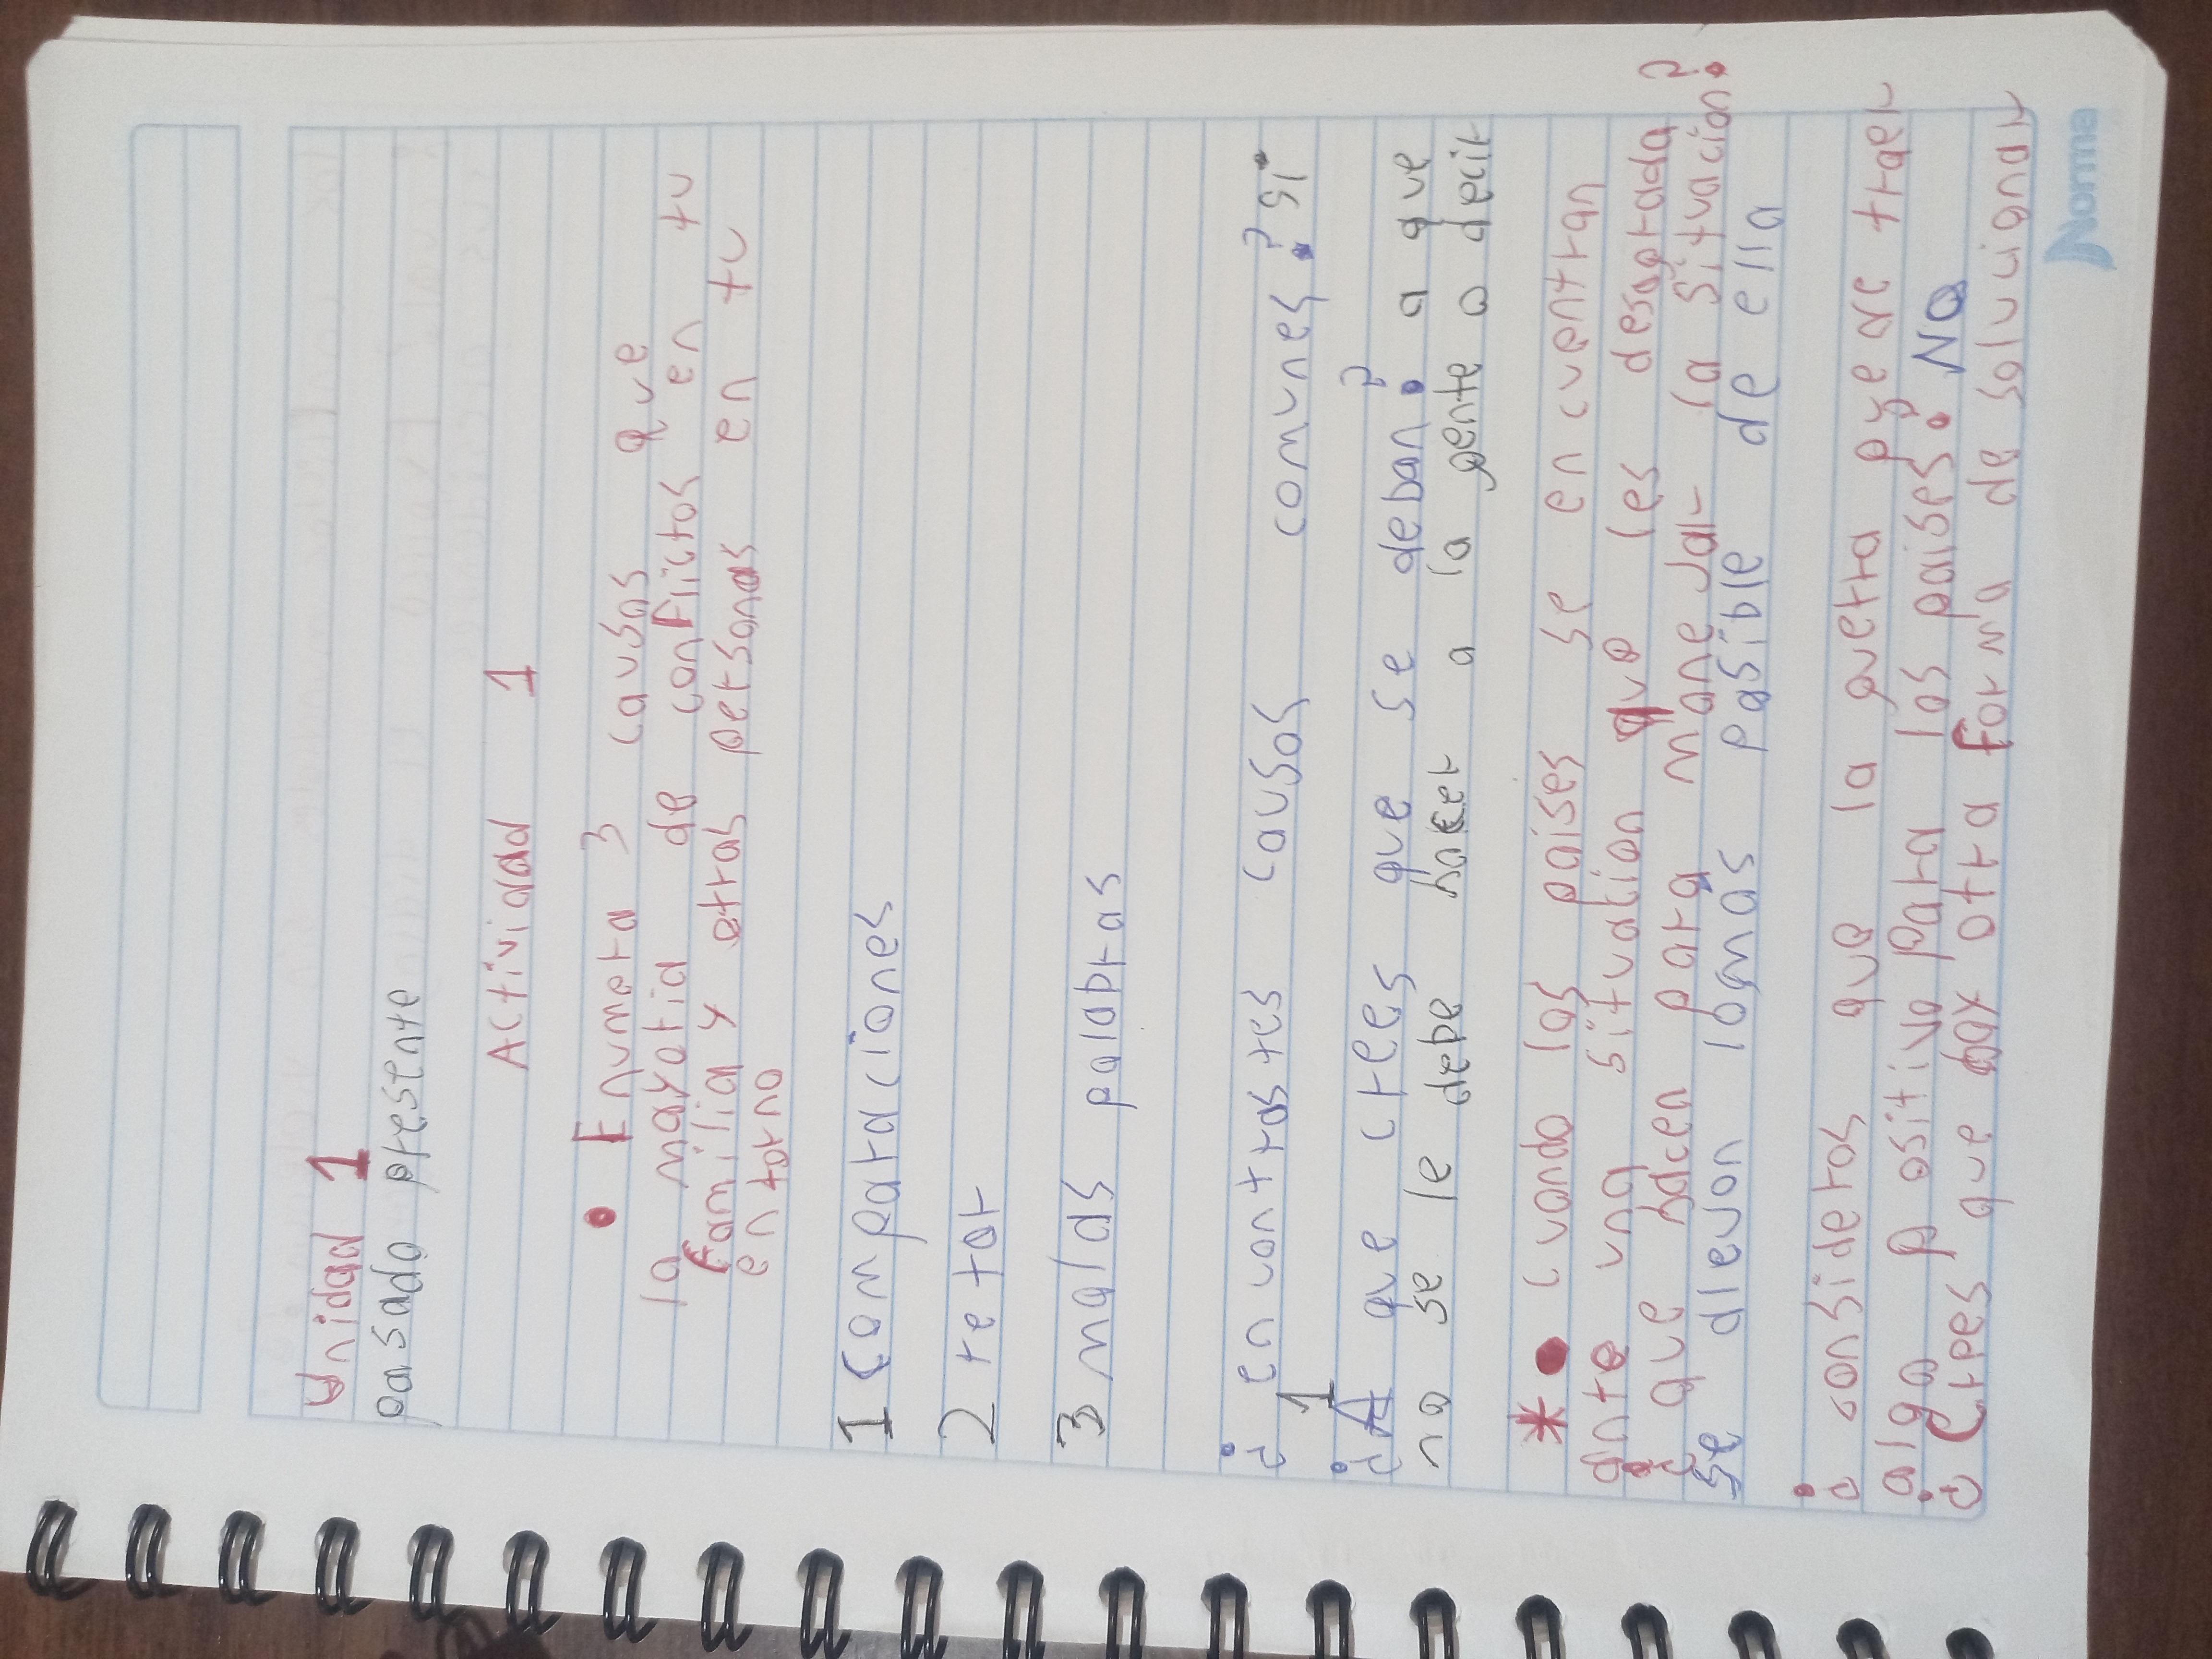 Unidad 1
pasado presente
Actividad 1
• Enumera 3 causas que
la mayoria de conflictos en tu
familia y otras personas en tu
entorno
1 comparaciones
2 retar
3 malas palabras
¿encontrastes causas comunes? si
1
¿A que crees que se deban? a que
no se le debe huyar a la gente o decir
*• cuando los paises se encuentran
ante una situacion que les desagrada
¿que hacen para manejar la situacion?
se alejan lo mas pasible de ella
¿consideras que la guerra puede traer
algo positivo para los paises? No
¿Crees que hay otra forma de solucionar
Norma